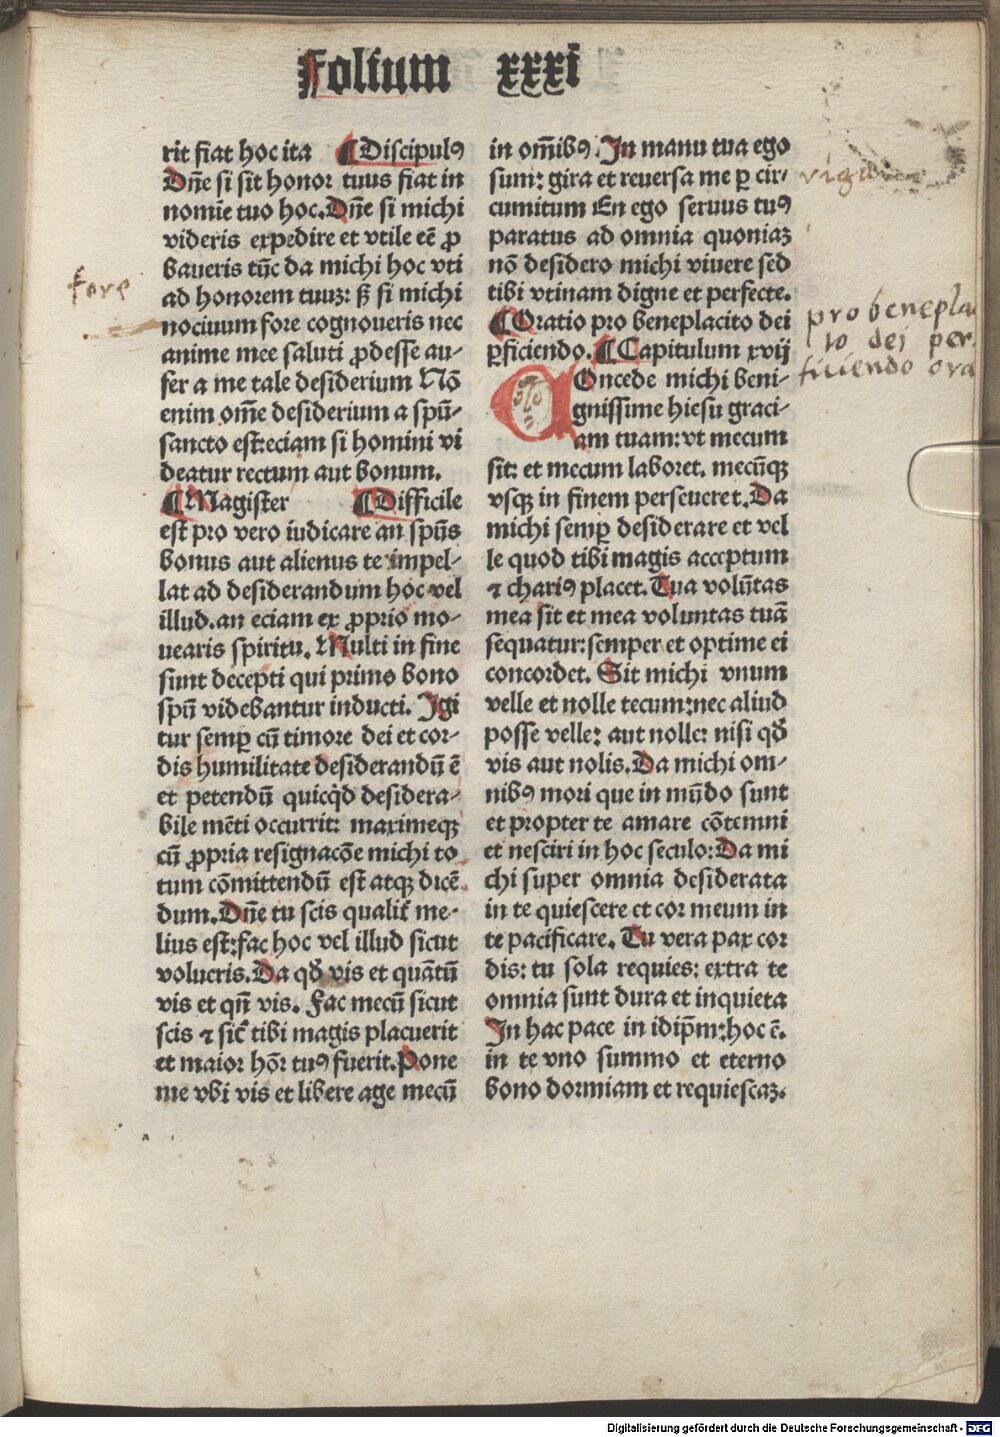 Folium xxxi
rit fiat hoc ita ¶Discipulꝰ
Dn̄e si sit honor tuus fiat in
nomīe tuo hoc. Dn̄e si michi
videris expedire et vtile eē ꝓ
baueris tūc da michi hoc vti
ad honorem tuuꝫ: sꝫ si michi
nociuum fore cognoueris nec
anime mee saluti ꝓdesse au-
fer a me tale desiderium Nō
enim om̄e desiderium a spū-
sancto est: eciam si homini vi
deatur rectum aut bonum.
¶Magister ¶Difficile
est pro vero iudicare an spūs
bonus aut alienus te impel-
lat ad desiderandum hoc vel
illud. an eciam ex ꝓprio mo-
uearis spiritu. Multi in fine
sunt decepti qui primo bono
spū videbantur inducti. Igi
tur semꝑ cū timore dei et cor-
dis humilitate desiderandū ē
et petendū quicq̇d desidera-
bile mēti occurrit: maximeqꝫ
cū ꝓpria resignacōe michi to
tum cōmittendū est atqꝫ dicē
dum. Dn̄e tu scis qualit̄ me-
lius est: fac hoc vel illud sicut
volueris. Da qd̄ vis et quātū
vis et qn̄ vis. Fac mecū sicut
scis ⁊ sic̄ tibi magis placuerit
et maior hōr tuꝰ fuerit. Pone
me vbi vis et libere age mecū
in om̄ibꝰ. In manu tua ego
sum: gira et reuersa me ꝑ cir-
cumitum En ego seruus tuꝰ
paratus ad omnia quoniaꝫ
nō desidero michi viuere sed
tibi vtinam digne et perfecte.
¶Oratio pro beneplacito dei
ꝑficiendo. ¶Capitulum xvij
COncede michi beni-
gnissime hiesu graci-
am tuam: vt mecum
sit: et mecum laboret. mecūqꝫ
vsqꝫ in finem perseueret. Da
michi semꝑ desiderare et vel
le quod tibi magis acceptum
⁊ chariꝰ placet. Tua volūtas
mea sit et mea voluntas tuā
sequatur: semper et optime ei
concordet. Sit michi vnum
velle et nolle tecum: nec aliud
posse velle: aut nolle: nisi qd̄
vis aut nolis. Da michi om-
nibꝰ mori que in mūdo sunt
et propter te amare cōtemni
et nesciri in hoc seculo: Da mi
chi super omnia desiderata
in te quiescere et cor meum in
te pacificare. Tu vera pax cor
dis: tu sola requies: extra te
omnia sunt dura et inquieta
In hac pace in idip̄m: hoc ē.
in te vno summo et eterno
bono dormiam et requiescaꝫ.
fore
pro benepla
to dei per
ficiendo ora
Digitalisierung gefördert durch die Deutsche Forschungsgemeinschaft - DFG